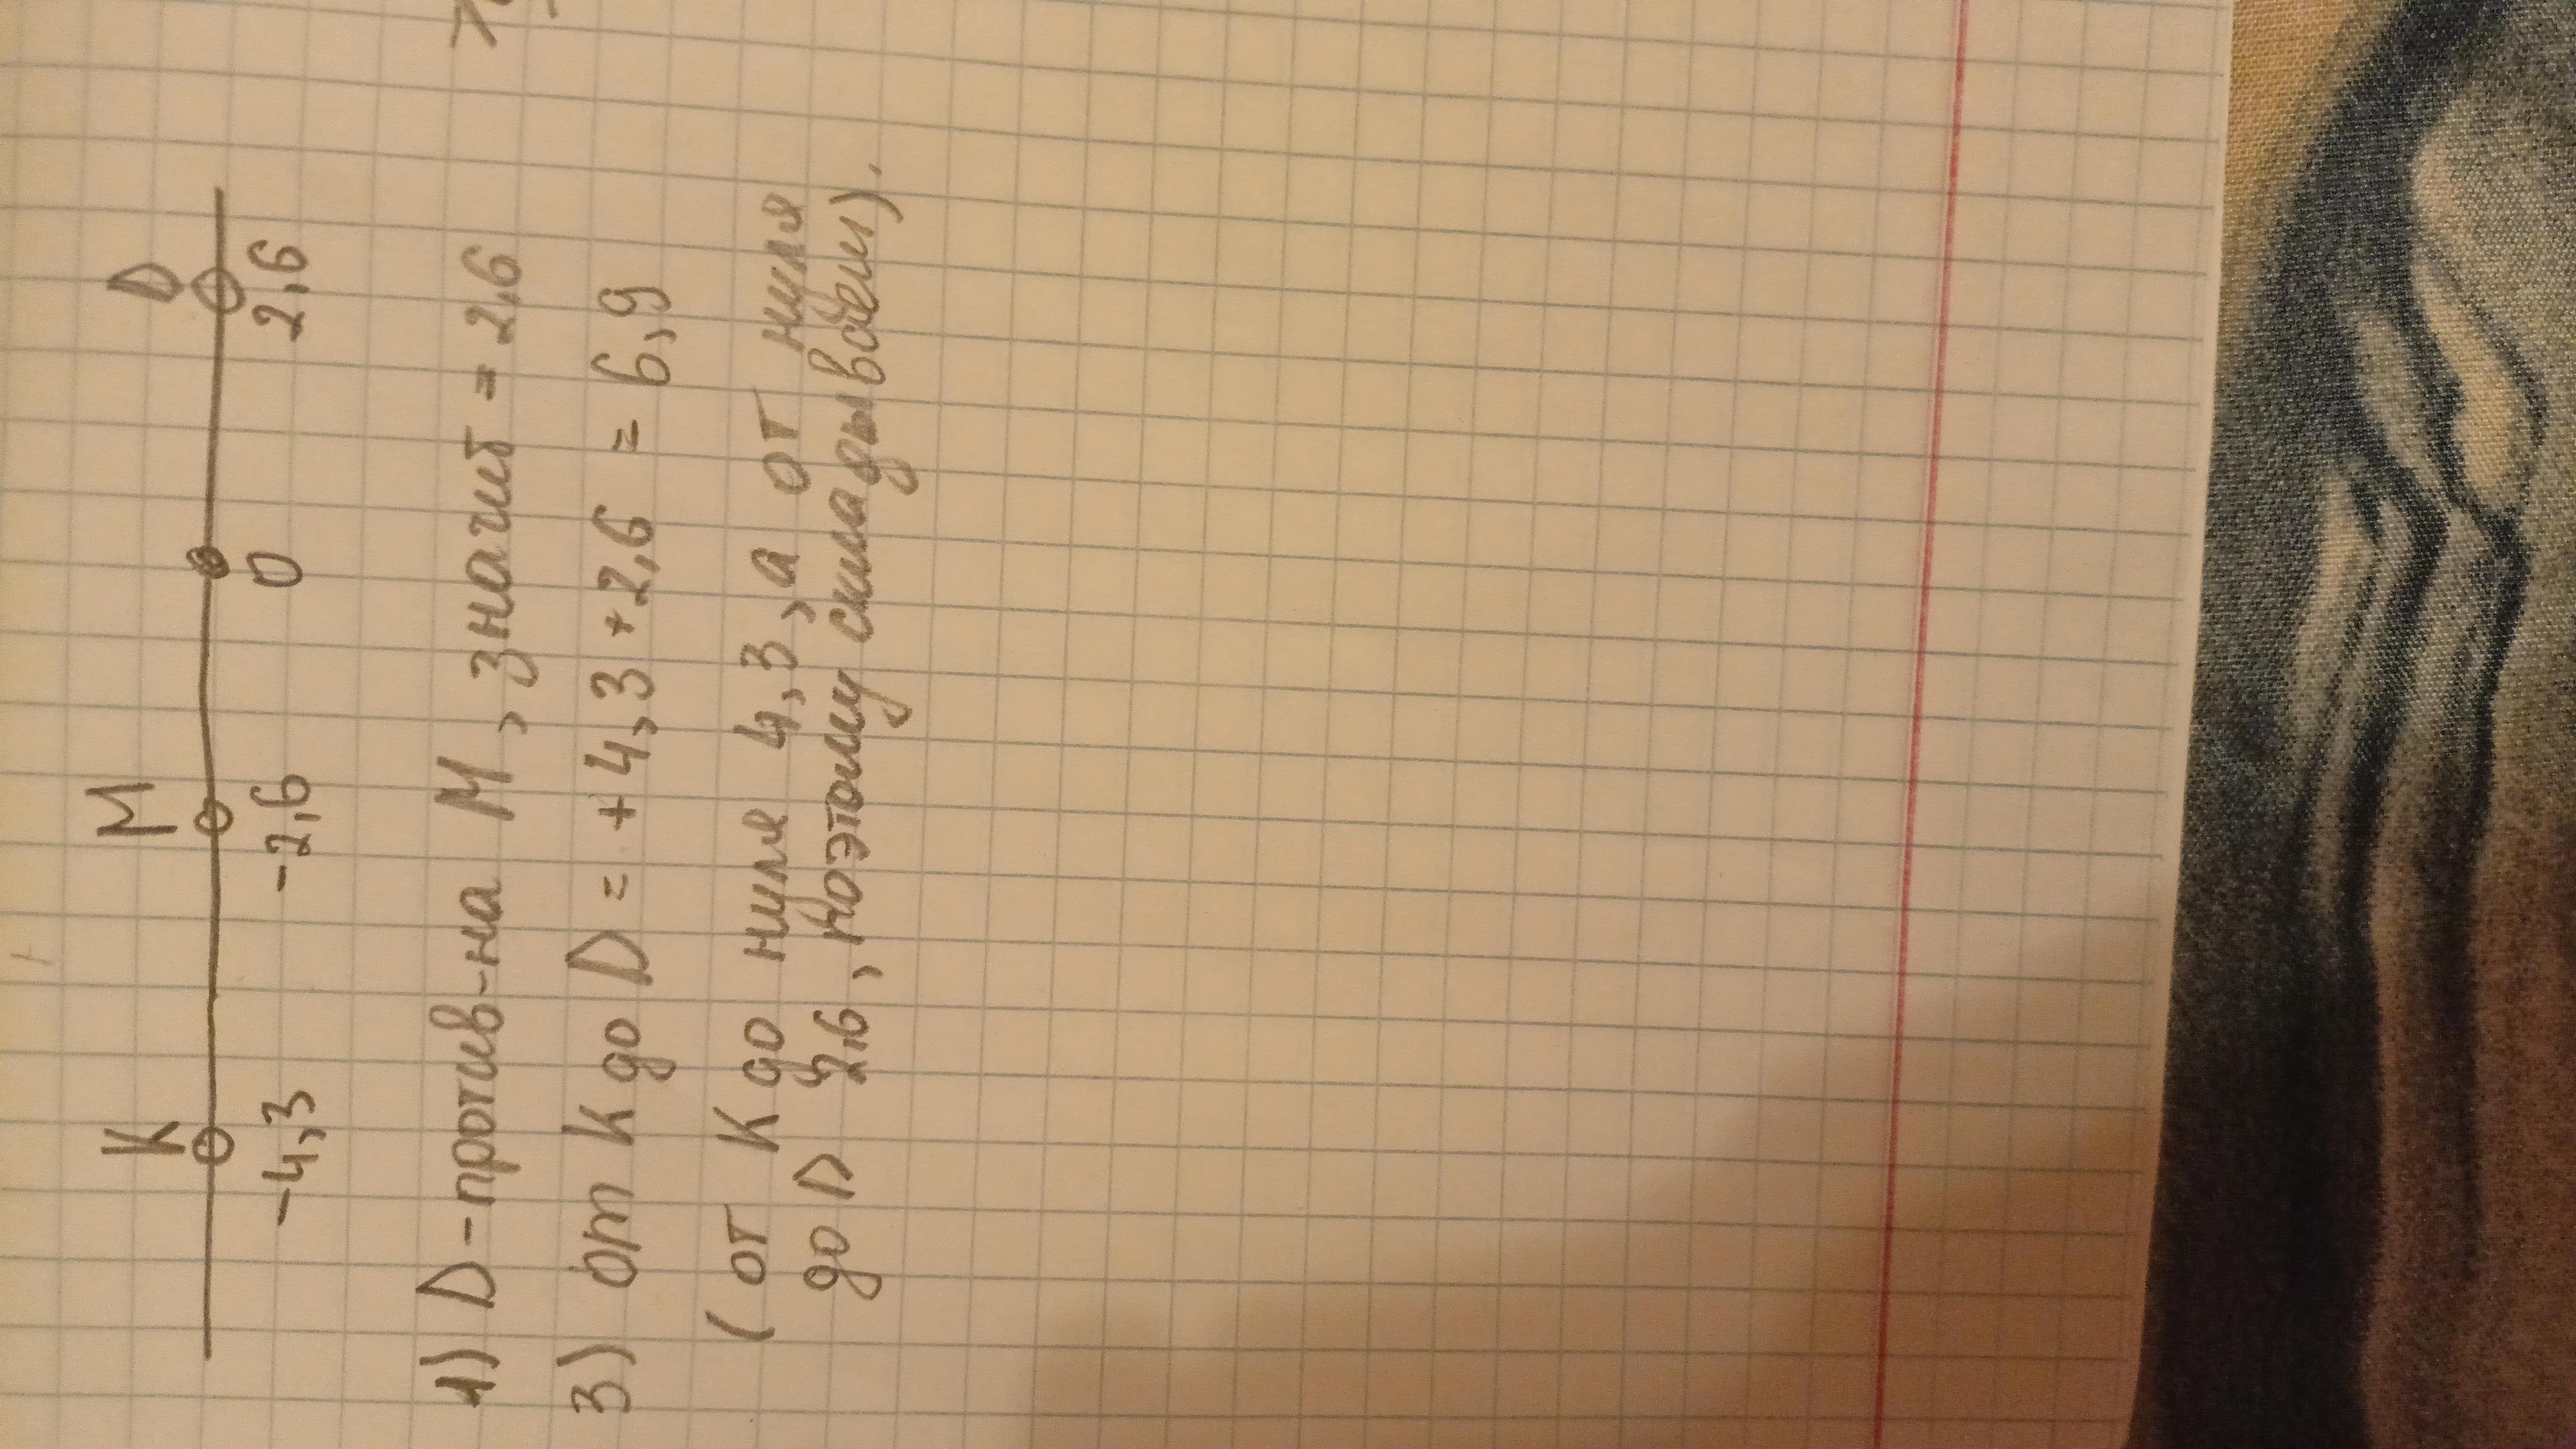 K M D
-4,3 -2,6 0 2,6
1) D-против-на M, значит = 2,6
3) от K до D = +4,3+2,6 = 6,9
(от K до нуля 4,3, а от нуля
до D 2,6, поэтому складываем).